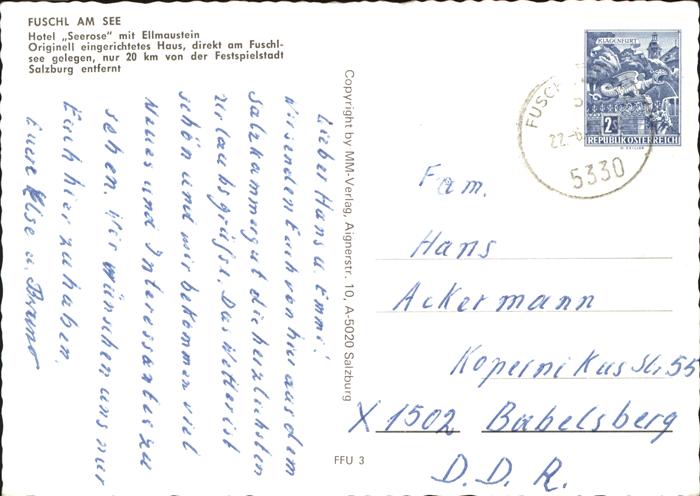 FUSCHL AM SEE
Hotel „Seerose" mit Ellmaustein
Originell eingerichtetes Haus, direkt am Fuschl-
see gelegen, nur 20 km von der Festspielstadt
Salzburg entfernt
Lieber Hans u. Emmi!
Wir senden Euch von hier aus dem
Salzkammergut die herzlichsten
Urlaubsgrüße. Das Wetter ist
schön und wir bekommen viel
Neues und Interessantes zu
sehen. Wir wünschen uns nur
Euch hier zu haben.
Eure Else u. Bruno
Copyright by MM-Verlag, Aignerstr. 10, A-5020 Salzburg
FFU 3
KLAGENFURT
2S
REPUBLIK ÖSTERREICH
FUSCHL
22.-6.
5330
Fam.
Hans
Ackermann
Kopernikusstr. 55
X 1502 Babelsberg
D.D.R.